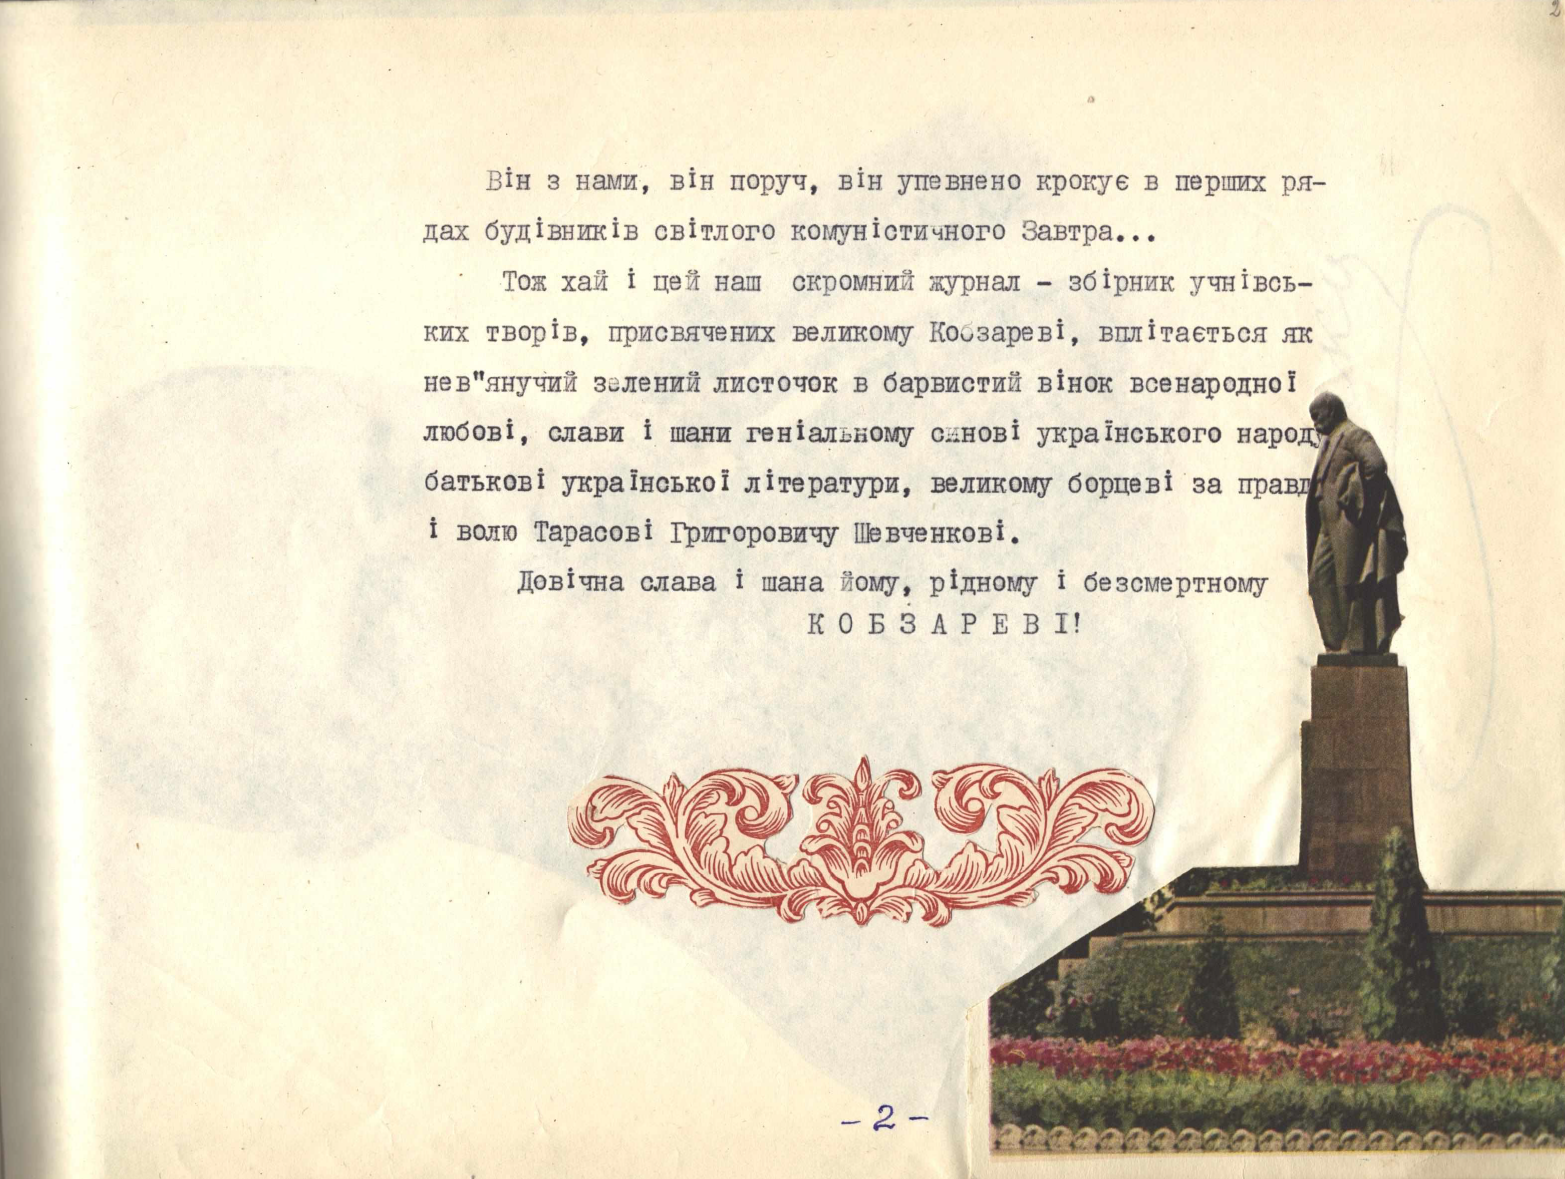 2
Він з нами, він поруч, він упевнено крокує в перших ря-
дах будівників світлого комуністичного Завтра...
Тож хай і цей наш скромний журнал - збірник учнівсь-
ких творів, присвячених великому Кобзареві, вплітається як
нев"янучий зелений листочок в барвистий вінок всенародної
любові, слави і шани геніальному синові українського народу
батькові української літератури, великому борцеві за правд
і волю Тарасові Григоровичу Шевченкові.
Довічна слава і шана йому, рідному і безсмертному
К О Б З А Р Е В І!
- 2 -